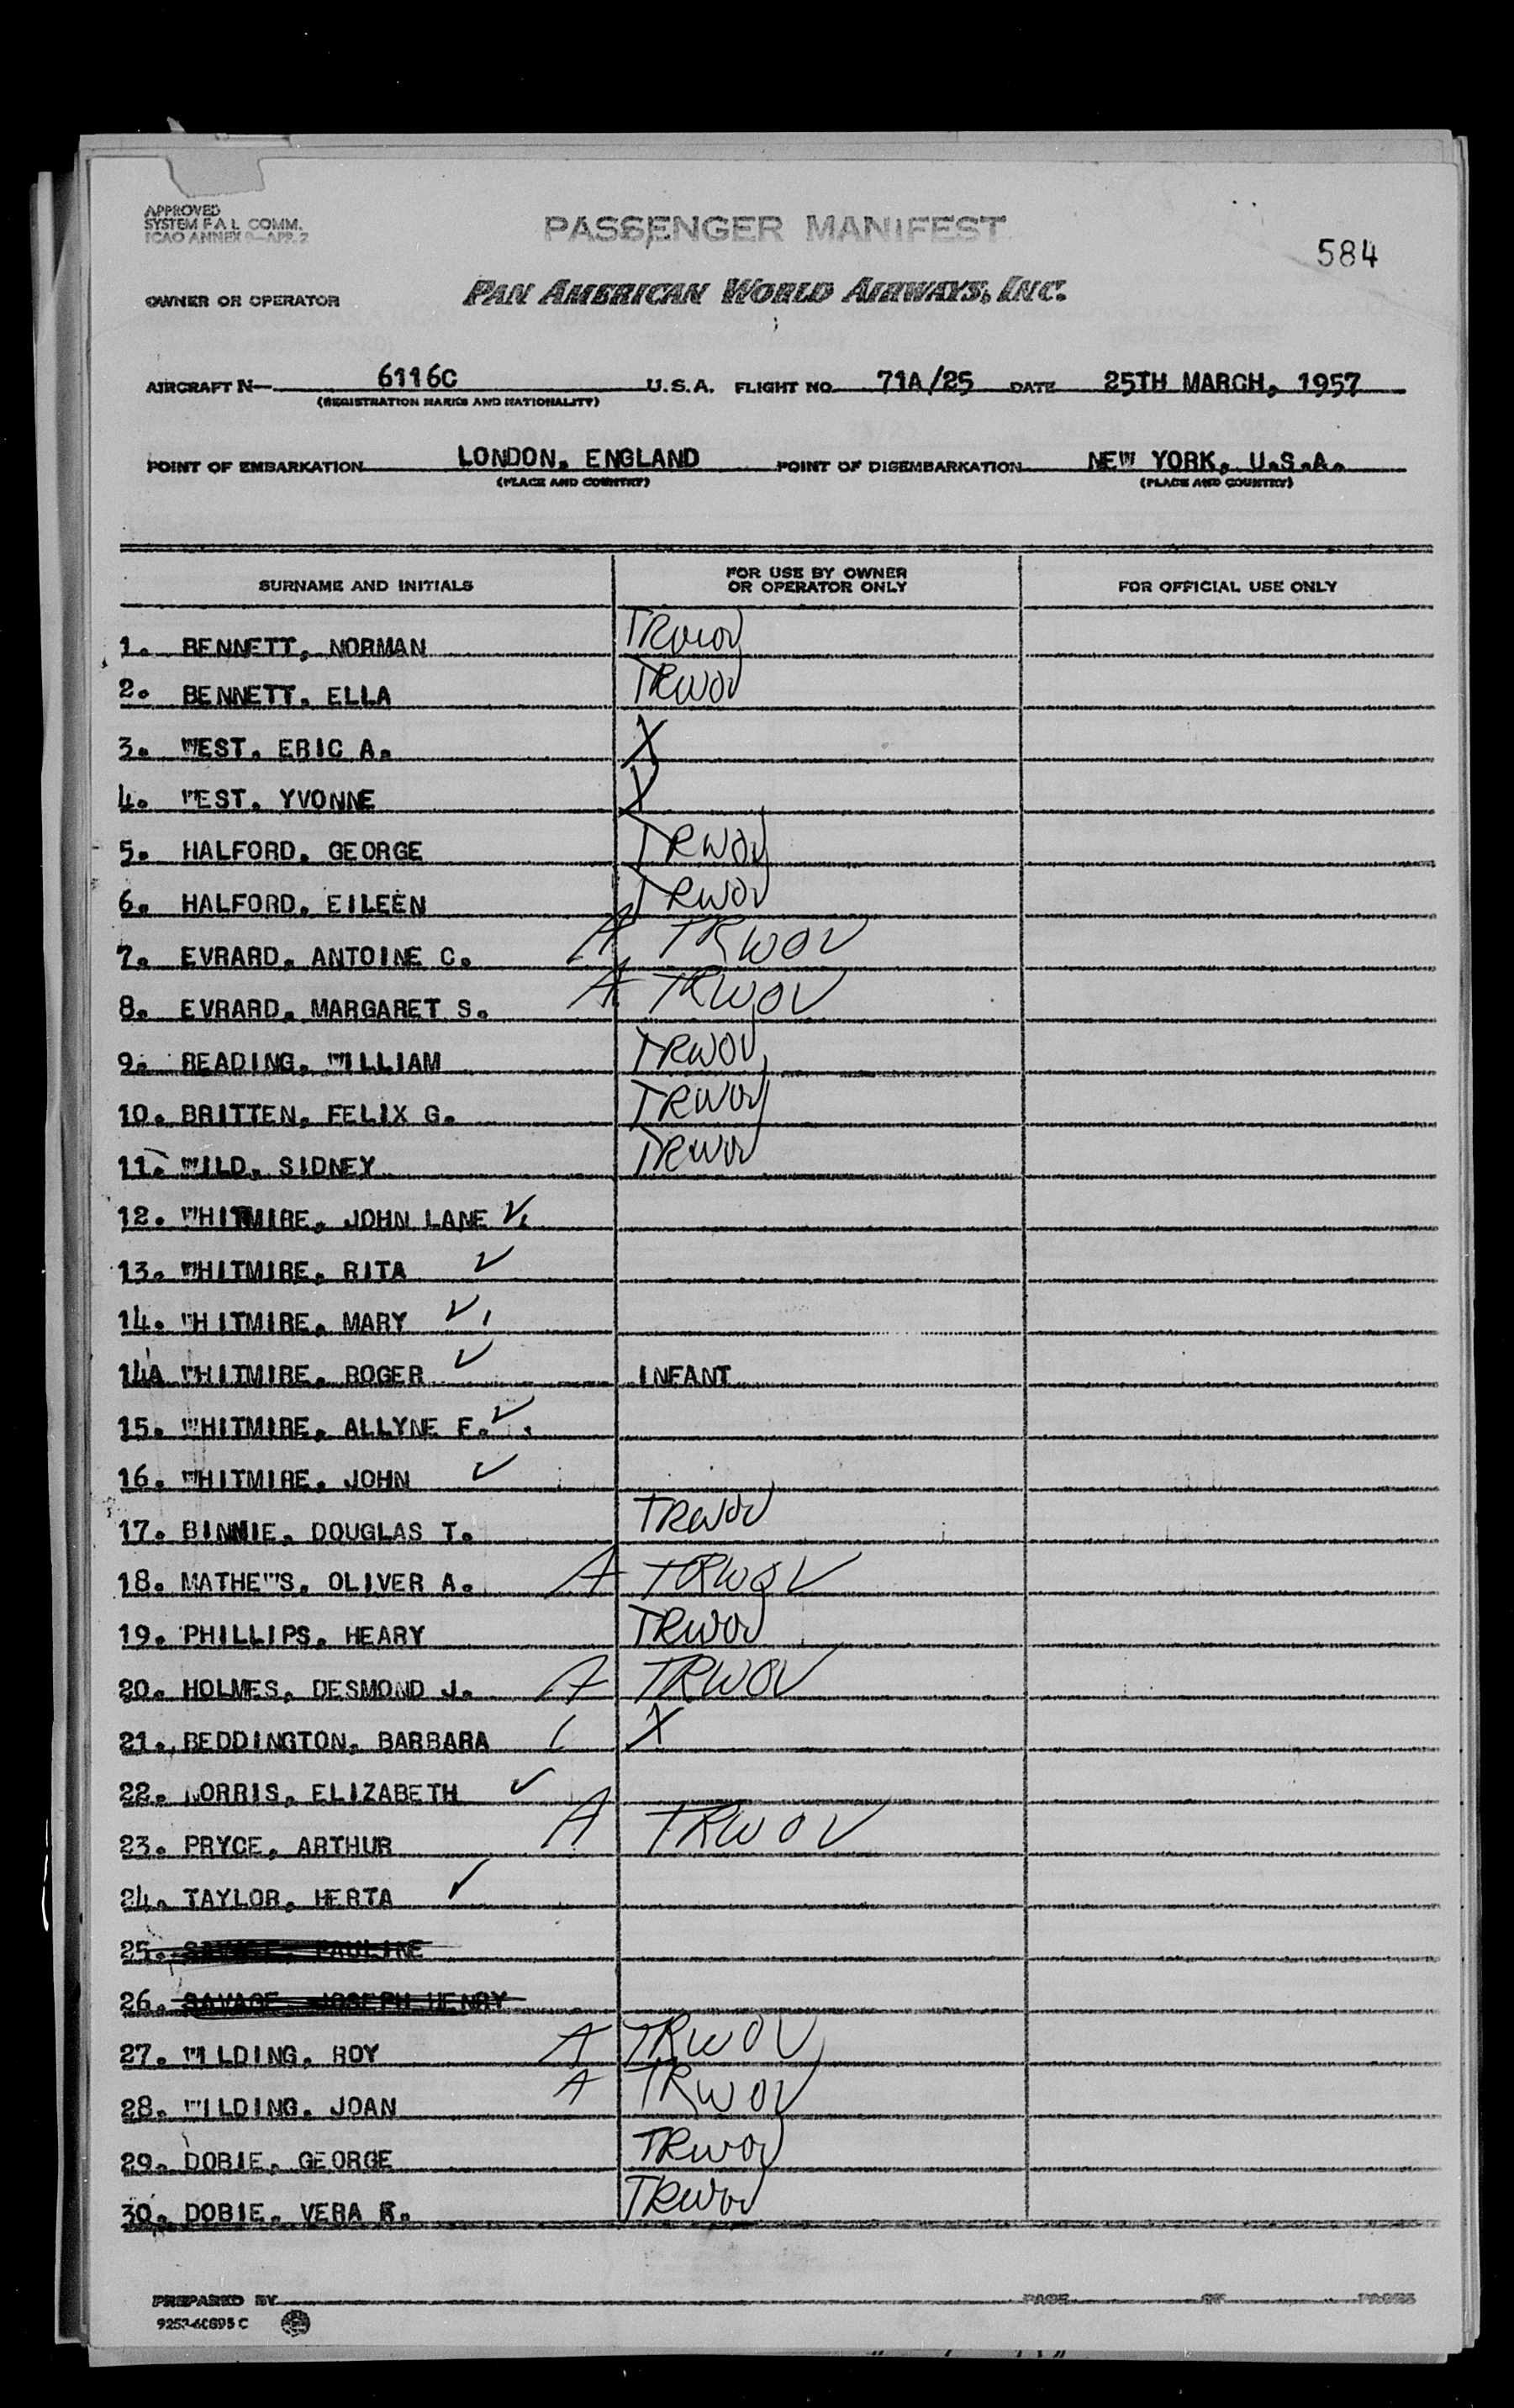 APPROVED
SYSTEM F A L COMM.
ICAO ANNEX 9—APP. 2
PASSENGER MANIFEST
584
OWNER OR OPERATOR PAN AMERICAN WORLD AIRWAYS, INC.
AIRCRAFT N— 6116C U.S.A. FLIGHT NO. 71A/25 DATE 25TH MARCH, 1957
(REGISTRATION MARKS AND NATIONALITY)
POINT OF EMBARKATION LONDON, ENGLAND POINT OF DISEMBARKATION NEW YORK, U.S.A.
(PLACE AND COUNTRY) (PLACE AND COUNTRY)
SURNAME AND INITIALS FOR USE BY OWNER OR OPERATOR ONLY FOR OFFICIAL USE ONLY
1. BENNETT, NORMAN TRWOV
2. BENNETT, ELLA TRWOV
3. WEST, ERIC A. X
4. WEST, YVONNE X
5. HALFORD, GEORGE TRWOV
6. HALFORD, EILEEN TRWOV
7. EVRARD, ANTOINE C. A TRWOV
8. EVRARD, MARGARET S. A TRWOV
9. READING, WILLIAM TRWOV
10. BRITTEN, FELIX G. TRWOV
11. WILD, SIDNEY TRWOV
12. WHITMIRE, JOHN LANE ✓
13. WHITMIRE, RITA ✓
14. WHITMIRE, MARY ✓
14A WHITMIRE, ROGER ✓ INFANT
15. WHITMIRE, ALLYNE F. ✓
16. WHITMIRE, JOHN ✓
17. BINNIE, DOUGLAS T. TRWOV
18. MATHEWS, OLIVER A. A TRWOV
19. PHILLIPS, HEARY TRWOV
20. HOLMES, DESMOND J. A TRWOV
21. BEDDINGTON, BARBARA X
22. ORRIS, ELIZABETH ✓
23. PRYCE, ARTHUR A TRWOV
24. TAYLOR, HERTA ✓
25. SAVAGE, PAULINE
26. SAVAGE, JOSEPH HENRY
27. WILDING, ROY A TRWOV
28. WILDING, JOAN A TRWOV
29. DOBIE, GEORGE TRWOV
30. DOBIE, VERA R. TRWOV
PREPARED BY PAGE OF PAGES